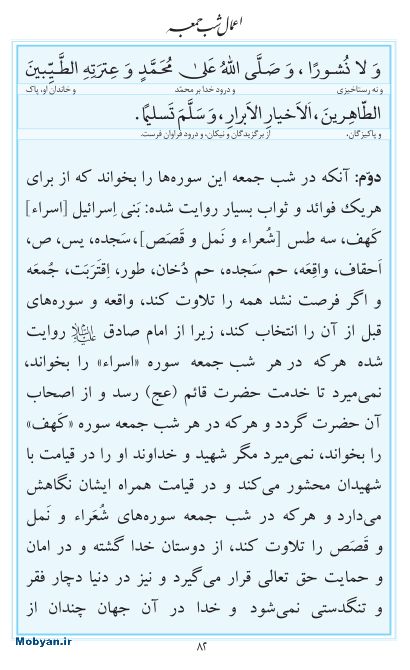 اعمال شب جمعه
وَ لا نُشـورًا ، وَ صَلَّى اللهُ عَلىٰ مُحَمَّدٍ وَ عِترَتِهِ الطَّـيِّبينَ
و نه رستاخیزی و درود خدا بر محمّد و خاندان او، پاک
الطّاهِـرينَ، اَلاَخيارِ الاَبرارِ، وَ سَلَّمَ تَسليمًا.
و پاکیزگان، از برگزیدگان و نیکان، و درود فراوان فرست.
دوّم: آنکه در شب جمعه این سوره‌ها را بخواند که از برای
هریک فوائد و ثواب بسیار روایت شده: بَنی اِسرائیل [اسراء]
کَهف، سه طس [شُعراء و نَمل و قَصَص]، سَجده، یس، ص،
اَحقاف، واقِعَه، حم سَجده، حم دُخان، طور، اِقتَرَبَت، جُمعَه
و اگر فرصت نشد همه را تلاوت کند، واقعه و سوره‌های
قبل از آن را انتخاب کند، زیرا از امام صادق علیه‌السلام روایت
شده هرکه در هر شب جمعه سوره «اسراء» را بخواند،
نمی‌میرد تا خدمت حضرت قائم (عج) رسد و از اصحاب
آن حضرت گردد و هرکه در هر شب جمعه سوره «کَهف»
را بخواند، نمی‌میرد مگر شهید و خداوند او را در قیامت با
شهیدان محشور می‌کند و در قیامت همراه ایشان نگاهش
می‌دارد و هرکه در شب جمعه سوره‌های شُعَراء و نَمل
و قَصَص را تلاوت کند، از دوستان خدا گشته و در امان
و حمایت حق تعالی قرار می‌گیرد و نیز در دنیا دچار فقر
و تنگدستی نمی‌شود و خدا در آن جهان چندان از
۸۲
Mobyan.ir